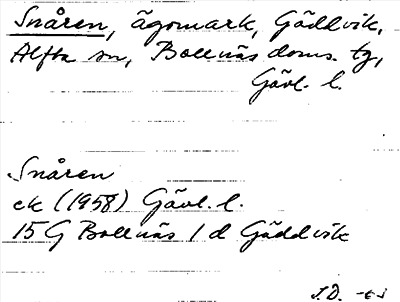 Snåren, ägomark, Gäddvik,
Alfta sn, Bollnäs doms. tg,
Gävl. l.
Snåren
ek (1958) Gävl. l.
15 G Bollnäs 1 d Gäddvik